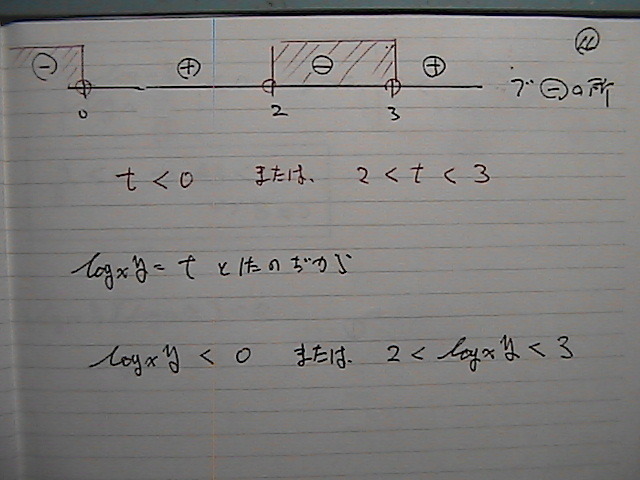 ⑪
⊖ ⊕ ⊖ ⊕
0 2 3 で⊖の所
t < 0 または、 2 < t < 3
logxy = t としたのだから
logxy < 0 または、 2 < logxy < 3